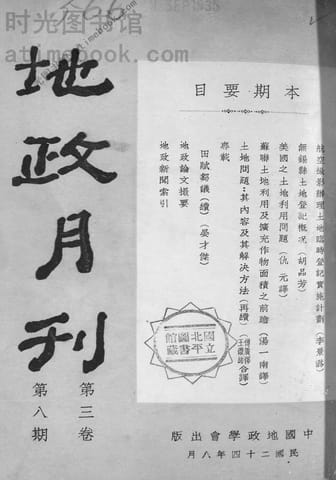 时光图书馆
atimebook.com
SEP 1935
地政月刊
第三卷
第八期
本期要目
航空攝影辦理土地臨時登記實施計劃(李景潞)
無錫縣土地登記概况(胡品芳)
美國之土地利用問題(仇元譯)
蘇聯土地利用及擴充作物面積之前瞻(湯一南譯)
土地問題:其內容及其解決方法(再續)(合譯)
專載
田賦芻議(續)(晏才傑)
地政論文撮要
地政新聞索引
國立北平圖書館藏
中國地政學會出版
民國二十四年八月